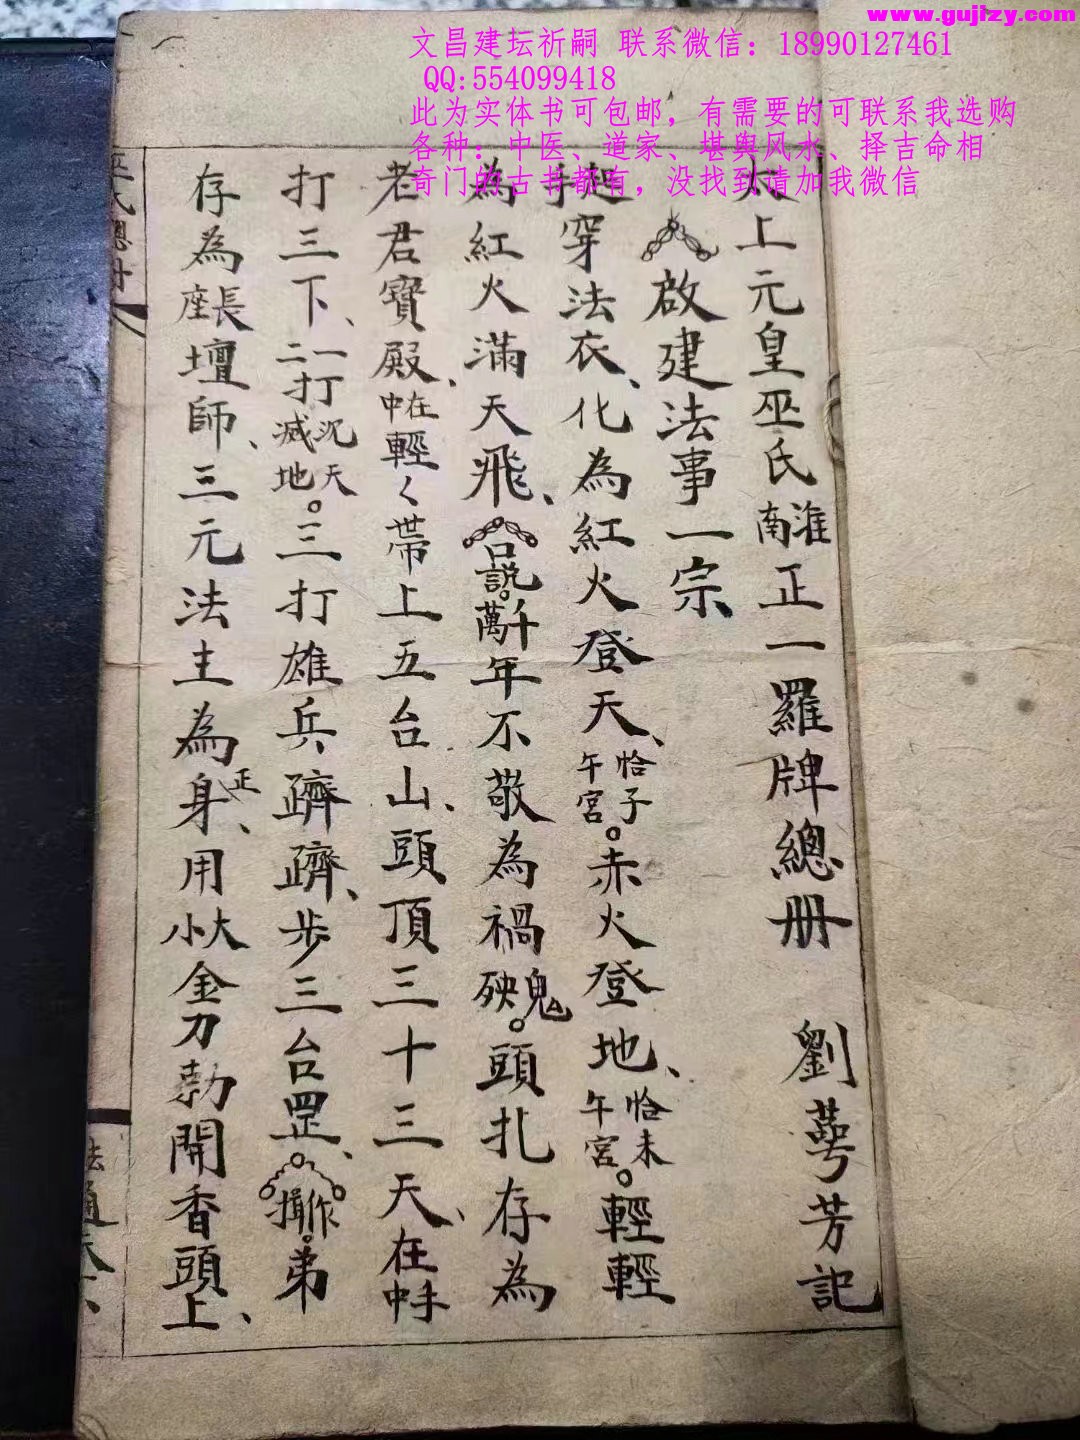 www.gujizy.com
文昌建坛祈嗣 联系微信：18990127461
QQ:554099418
此为实体书可包邮，有需要的可联系我选购
各种：中医、道家、堪舆风水、择吉命相
奇门的古书都有，没找到请加我微信
太上元皇巫氏淮南正一羅牌總册 劉萼芳記
啟建法事一宗
起手穿法衣、化為紅火登天、恰子午宮。赤火登地、恰未午宮。輕輕
為紅火滿天飛、口説。千萬年不敬為禍鬼殃。頭扎存為
老君寶殿、在中輕く帶上五台山、頭頂三十三天、在手中
打三下、一打沉天二打滅地。三打雄兵躋躋、步三台罡、作揖。弟
存為座長壇師、三元法主為正身、用大小金刀勅開香頭上、
巫氏總册
法通